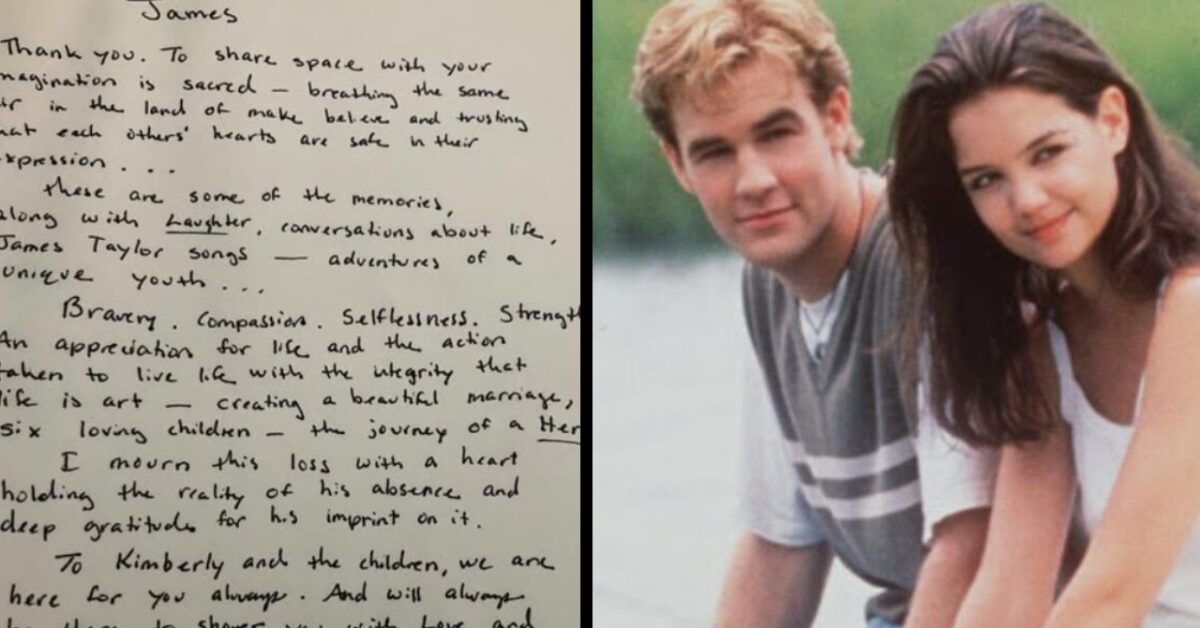 James
Thank you. To share space with your
magination is sacred — breathing the same
ir in the land of make believe and trusting
hat each others' hearts are safe in their
xpression . . .
these are some of the memories,
along with Laughter, conversations about life,
James Taylor songs — adventures of a
unique youth . . .
Bravery. Compassion. Selflessness. Strength
An appreciation for life and the action
taken to live life with the integrity that
life is art — creating a beautiful marriage,
six loving children — the journey of a Her
I mourn this loss with a heart
holding the reality of his absence and
deep gratitude for his imprint on it.
To Kimberly and the children, we are
here for you always. And will always
be there to shower you with Love and